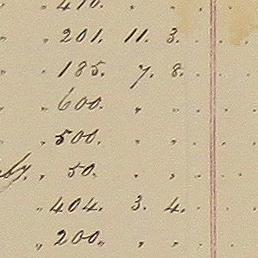 " 410. " "
" 201. 11. 3.
" 185. 7. 8.
" 600. " "
" 500. " "
" 50. " "
" 404. 3. 4.
" 200 " "